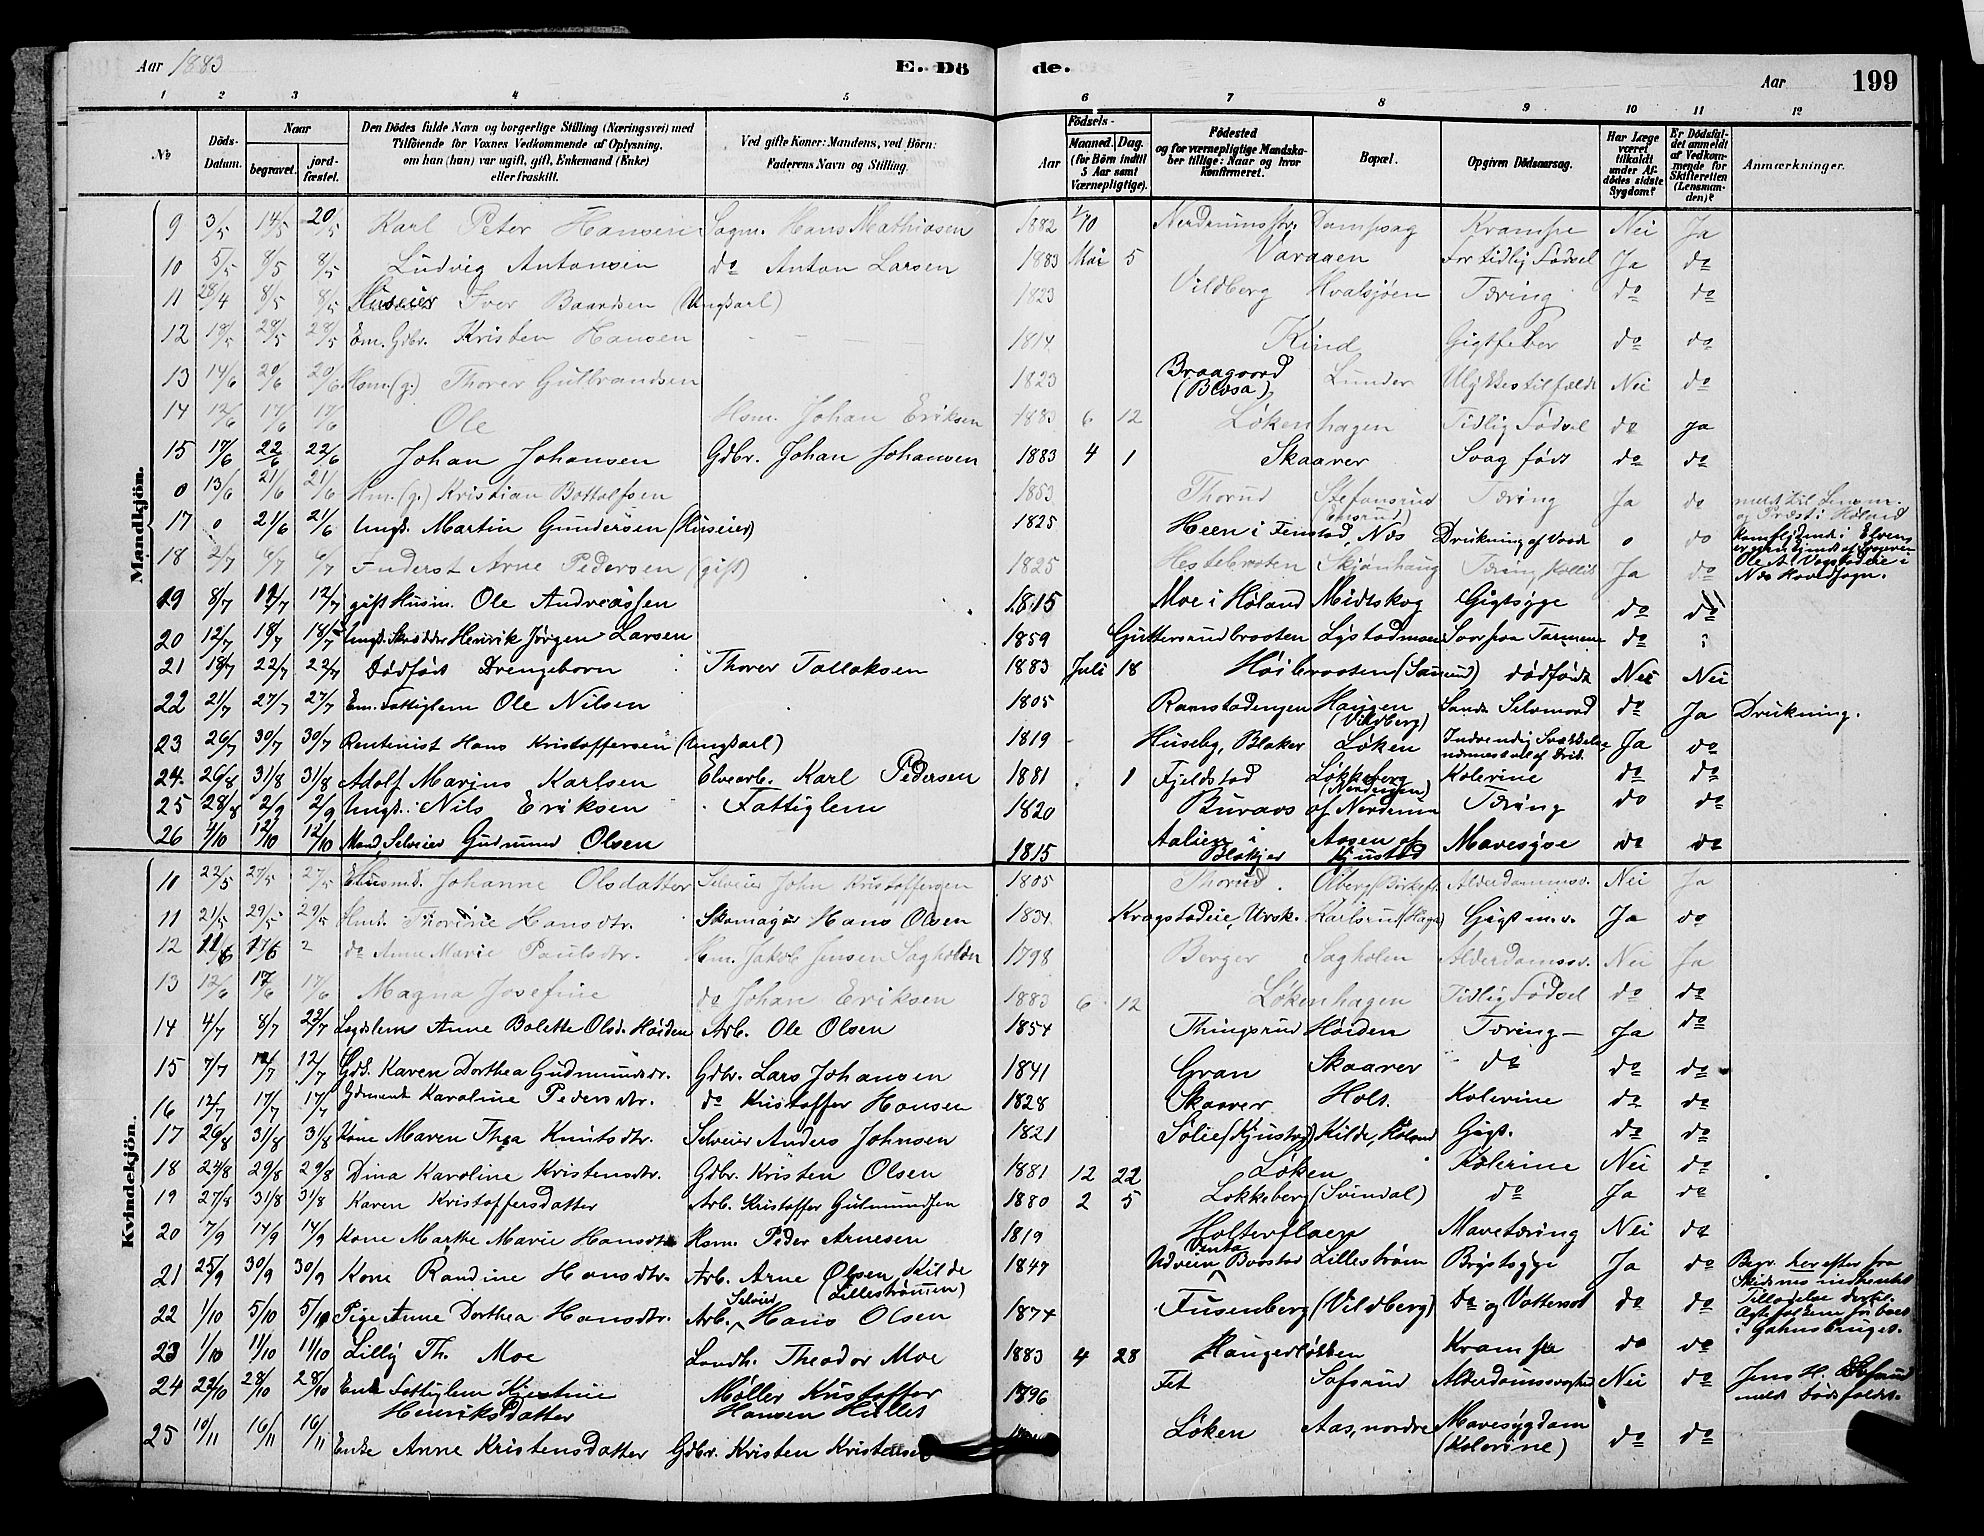 Aar 1883 E. Dö de. Aar 199
1 2 3 4 5 6 7 8 9 10 11 12
№ Döds-Datum. Naar begravet. jordfæstet. Den Dödes fulde Navn og borgerlige Stilling (Næringsvei) med Tilföiende for Voxnes Vedkommende af Oplysning, om han (hun) var ugift, gift, Enkemand (Enke) eller fraskilt. Ved gifte Koner: Mandens, ved Börn: Faderens Navn og Stilling. Födsels- Aar Maaned. Dag. (for Börn indtil 5 Aar samt Værnepligtige). Födested og for værnepligtige Mandskaber tillige: Naar og hvor konfirmeret. Bopæl. Opgiven Dödsaarsag. Har Læge været tilkaldt under Afdödes sidste Sygdom? Er Dödsfaldet anmeldt af Vedkommende for Skifteretten (Lensmanden)? Anmærkninger.
Mandkjön.
9 3/5 14/5 20/5 Karl Peter Hansen Sagm. Hans Mathiasen 1882 1/10 Nerdrumsstr. Dampsag Krampe Nei Ja
10 5/5 8/5 8/5 Ludvig Antonsen do Anton Larsen 1883 Mai 5 Varaaen For tidlig Fødsel Ja do
11 28/4 8/5 8/5 Huseier Iver Baardsen (Ungkarl) 1823 Vildberg Hvalsjøen Tæring do do
12 18/5 28/5 28/5 Em. Gdbr. Kristen Hansen 1814 Kind Gigtfeber do do
13 14/6 20/6 20/6 Hsm. (g.) Thorer Gulbrandsen 1823 Braagaard (Blaesa) Lunder Ulykkestilfælde Nei do
14 12/6 17/6 17/6 Ole Hsm. Johan Eriksen 1883 6 12 Løkenhagen Tidlig Fødsel do Ja
15 17/6 22/6 22/6 Johan Johansen Gdbr. Johan Johansen 1883 4 1 Skaarer Svag født do do
0 13/6 21/6 21/6 Hm. (g.) Kristian Bottolfsen 1853 Thorud Stefansrud Tæring Ja do meldt til Lensm. og Præst i Høland
17 0 21/6 21/6 Ungk. Martin Gundersen (Huseier) 1825 Heen i Fenstad, Næs Drukning af Vaade 0 do
18 2/7 6/7 6/7 Inderst Arne Pedersen (gift) 1825 Hestebraaten Skjønhaug Tæring Ja do
19 8/7 12/7 12/7 gift Husm. Ole Andreassen 1815 Moe i Høland Midtskog Gigtsyge do do
20 12/7 18/7 18/7 Ungk. Skrædder Henrik Jørgen Larsen 1859 Guttersrudbraaten Lystadmoen Saar paa Tarmene do
21 18/7 22/7 22/7 Dødfødt Drengebarn Thorer Tollaksen 1883 Juli 18 Høibraaten dødfødt Nei Nei
22 21/7 27/7 27/7 Em. Fattiglem Ole Nilsen 1805 Ramstadengen Haugen (Vildberg) Selvmord do Ja Drukning.
23 26/7 30/7 30/7 Rentenist Hans Kristoffersen (Ungkarl) 1819 Huseby, Blaker Løken Indvendig Svækkelse Ja do
24 26/8 31/8 31/8 Adolf Marius Karlsen Elvearb. Karl Pedersen 1881 1 Fjeldstad Løkkeberg Kolerine do do
25 28/8 2/9 2/9 Ungk. Nils Eriksen Fattiglem 1820 Buraas af Nerdrum Tæring do do
26 4/10 12/10 12/10 Mand, Selveier Gudmund Olsen 1815 Aalien i Blakjer Aasen af Kjustad Mavesyge do do
Kvindekjön.
10 22/5 27/5 27/5 Johanne Olsdatter Selveier John Kristoffersen 1805 Thorud Alderdomssv. Nei Ja
11 21/5 29/5 29/5 Thorine Hansdtr. Skomager Hans Olsen 1834 Kragstadeie, Ursk. Karlsrud Gigt m. v. Ja do
12 11/6 17/6 2 do Anne Marie Paulsdtr. Hsm. Jakob Jensen Sagholen 1798 Berger Sagholen Alderdomssv. Nei Ja
13 12/6 17/6 17/6 Magna Josefine do Johan Eriksen 1883 6 12 Løkenhagen Tidlig Fødsel do do
14 4/7 8/7 22/7 Legdslem Anne Bolette Olsd. Høiden Arb. Ole Olsen 1854 Thingsrud Høiden Tæring Ja do
15 7/7 12/7 12/7 Karen Dorthea Gudmundsdr. Gdbr. Lars Johansen 1841 Gran Skaarer do do do
16 12/7 17/7 17/7 Karoline Pedersdtr. do Kristoffer Hansen 1828 Skaarer Holt. Kolerine do do
17 26/8 31/8 31/8 Kone Maren Thea Knutsdtr. Selveier Anders Johnsen 1821 Solie (Kjustad) Kilde, Høland Gigt. do do
18 24/8 29/8 29/8 Dina Karoline Kristensdtr. Gdbr. Kristen Olsen 1881 12 22 Løken Kolerine Nei do
19 27/8 31/8 31/8 Karen Kristoffersdatter Arb. Kristoffer Gudmundsen 1880 2 5 Løkkeberg (Svindal) do Ja do
20 7/9 14/9 14/9 Kone Marthe Marie Hansdtr. Hsm. Peder Arnesen 1819 Holterflaen Mavetæring Nei do
21 25/9 30/9 30/9 Kone Randine Hansdtr. Arb. Arne Olsen, Kilde (Lillestrømmen) 1847 Baastad Lillestrøm Brystsyge Ja do Begr. her efter fra Skedsmo indhentet Tilladelse dertil. Ægtefolkene før boet i Gahnsbruget.
22 1/10 5/10 5/10 Pige Anne Dorthea Hansdtr. Arb. Selveier Hans Olsen 1874 Fusenberg (Vildberg) do og Vattersot do do
23 1/10 11/10 11/10 Lilly Th. Moe Landh. Theodor Moe 1883 4 28 Haugerløkken Krampe do do
24 22/10 28/10 28/10 Enke Fattiglem Kjerstine Henriksdatter Møller Kristoffer Hansen Hullet 1796 Fet Sofsrud Alderdomssvaghed Nei do Jens H. meldt Dødsfaldet.
25 10/11 16/11 16/11 Enke Anne Kristensdatter Gdbr. Kristen Kristensen Løken Aas, nordre Mavesygdom (Kolerine) do do